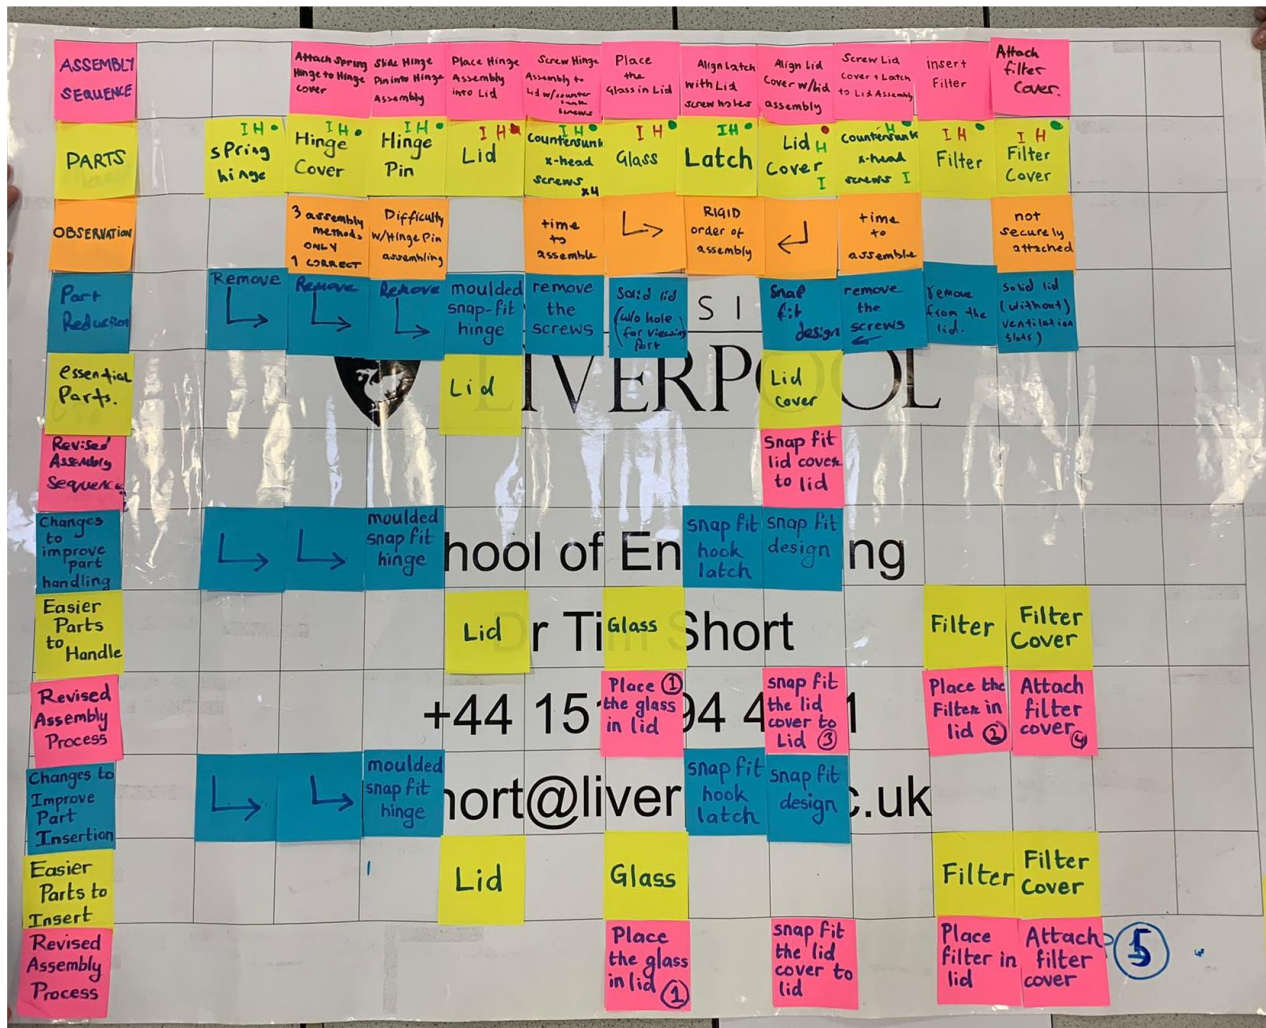 ASSEMBLY
SEQUENCE
Attach Spring
Hinge to Hinge
cover
Slide Hinge
Pin into Hinge
Assembly
Place Hinge
Assembly
into Lid
Screw Hinge
Assembly to
Lid w/counter
sunk
screws
Place
the
Glass in Lid
Align Latch
with Lid
screw holes
Align Lid
Cover w/Lid
assembly
Screw Lid
Cover + Latch
to Lid Assembly
Insert
Filter
Attach
filter
Cover.
PARTS
I H
spring
hinge
I H
Hinge
Cover
I H
Hinge
Pin
I H
Lid
I H
Countersunk
x-head
screws
x4
I H
Glass
I H
Latch
Lid H
Cover
I
H
Countersunk
x-head
screws I
I H
Filter
I H
Filter
Cover
OBSERVATION
3 assembly
methods
ONLY
1 CORRECT
Difficulty
w/Hinge Pin
assembling
time
to
assemble
RIGID
order of
assembly
time
to
assemble
not
securely
attached
Part
Reduction
Remove
Remove
Remove
moulded
snap-fit
hinge
remove
the
screws
Solid lid
(w/o hole
for viewing
Port
S I
Snap
fit
design
remove
the
screws
remove
from the
lid.
solid lid
(without)
ventilation
slots)
essential
Parts.
Lid
Lid
Cover
LIVERPOOL
Revised
Assembly
Sequence
Snap fit
lid cover
to lid
Changes
to
improve
part
handling
moulded
snap fit
hinge
snap fit
hook
latch
snap fit
design
hool of En ng
Easier
Parts
to
Handle
Lid
Glass
Filter
Filter
Cover
r Ti Short
Revised
Assembly
Process
Place 1
the glass
in lid
snap fit
the lid
cover to
Lid 3
Place the
Filter in
lid 2
Attach
filter
cover 4
+44 15 94 4 1
Changes to
Improve
Part
Insertion
moulded
snap fit
hinge
snap fit
hook
latch
snap fit
design
hort@liver c.uk
Easier
Parts to
Insert
Lid
Glass
Filter
Filter
Cover
Revised
Assembly
Process
Place
the glass
in lid 1
snap fit
the lid
cover to
lid
Place
filter in
lid
Attach
filter
cover
5